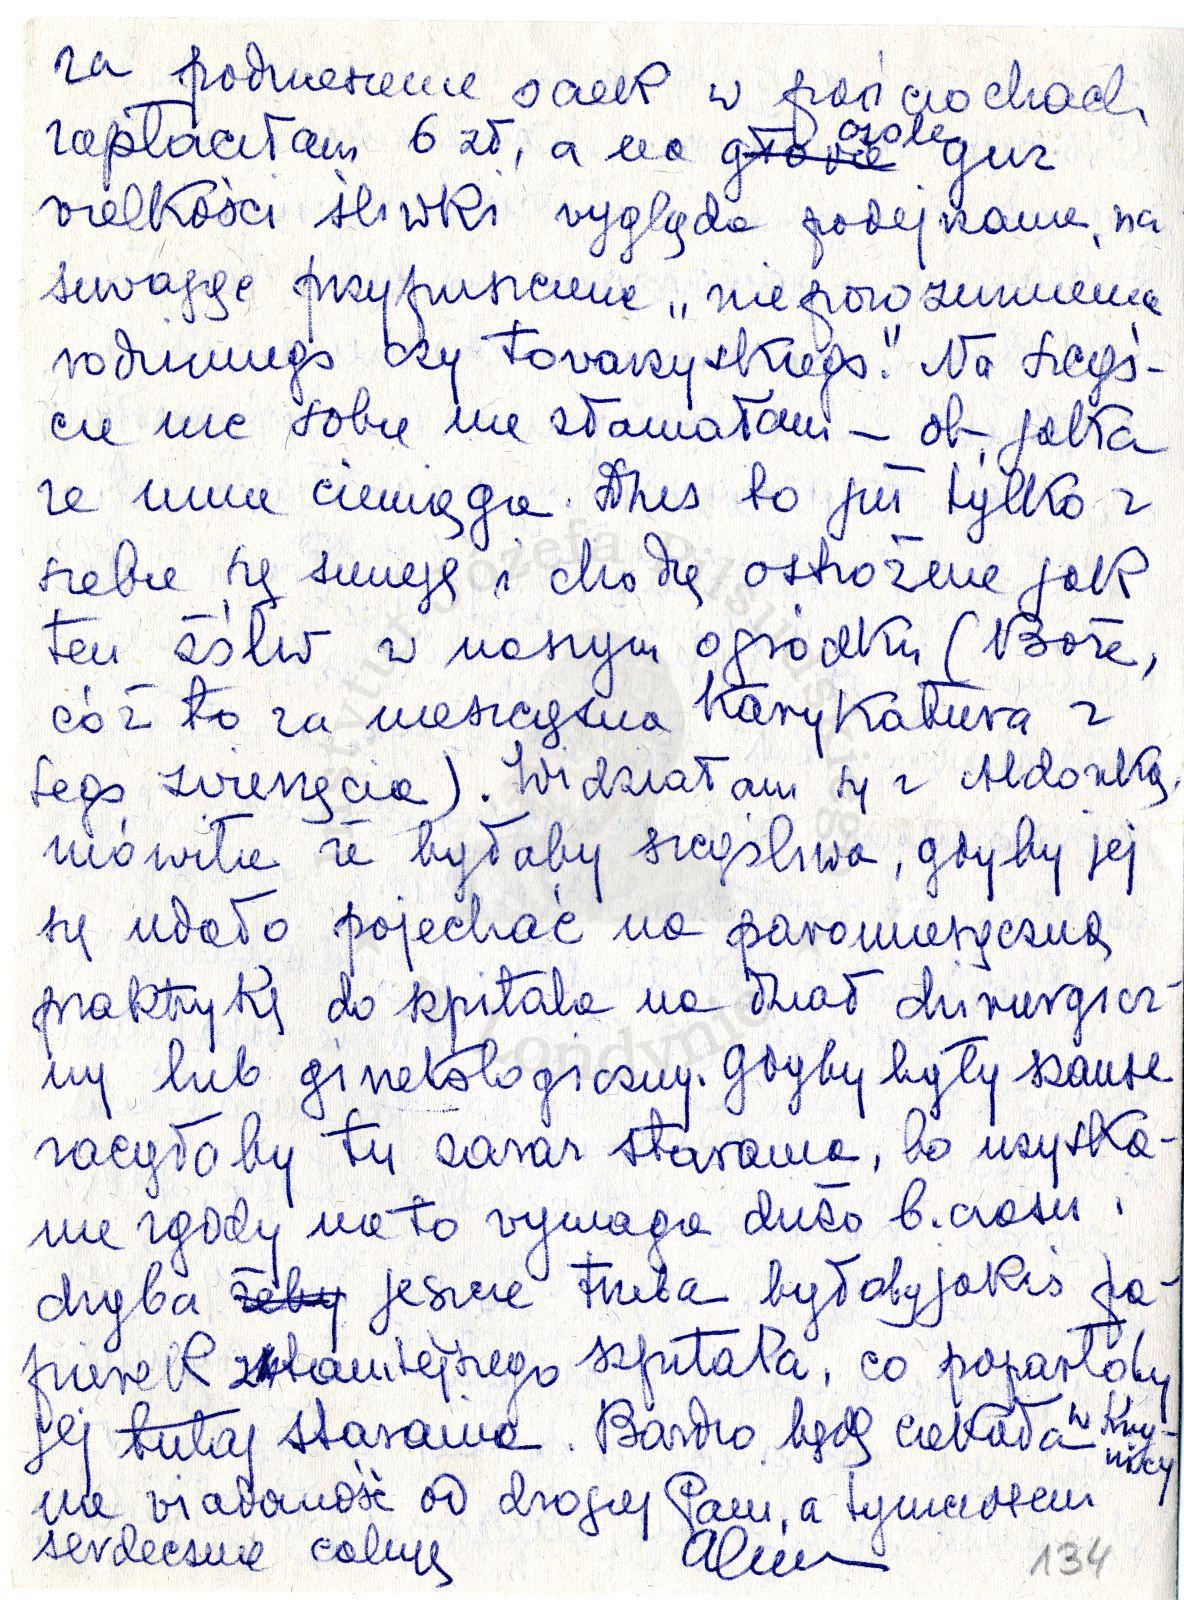 za podniesienie oczek w pończochach
zapłaciłam 6 zł, a na głowie czole guz
wielkości śliwki wygląda podejrzanie, na
suwając przypuszczenie „nieporozumienia
rodzinnego czy towarzyskiego." Na szczęś-
cie nic sobie nie złamałam –
ze mnie ciemięga. Dziś to już tylko z
siebie się śmieję i chodzę ostrożnie jak
ten żółw w naszym ogródku (Boże,
cóż to za nieszczęsna karykatura z
tego zwierzęcia). Widziałam się z Aldonką,
mówiła że byłaby szczęśliwa, gdyby jej
się udało pojechać na paromiesięczną
praktykę do szpitala na dział chirurgicz-
ny lub ginekologiczny. Gdyby były szanse
zaczęłaby tu zaraz starania, bo uzyska-
nie zgody na to wymaga dużo b. czasu i
chyba żeby jeszcze trzeba byłoby jakiś pa-
pierek z tamtejszego szpitala, co poparłoby
jej tutaj starania. Bardzo będę czekała w Kry-
nicy
na wiadomość od drogiej Pani, a tymczasem
serdecznie całuję
134
Instytut Józefa Piłsudskiego
w Londynie